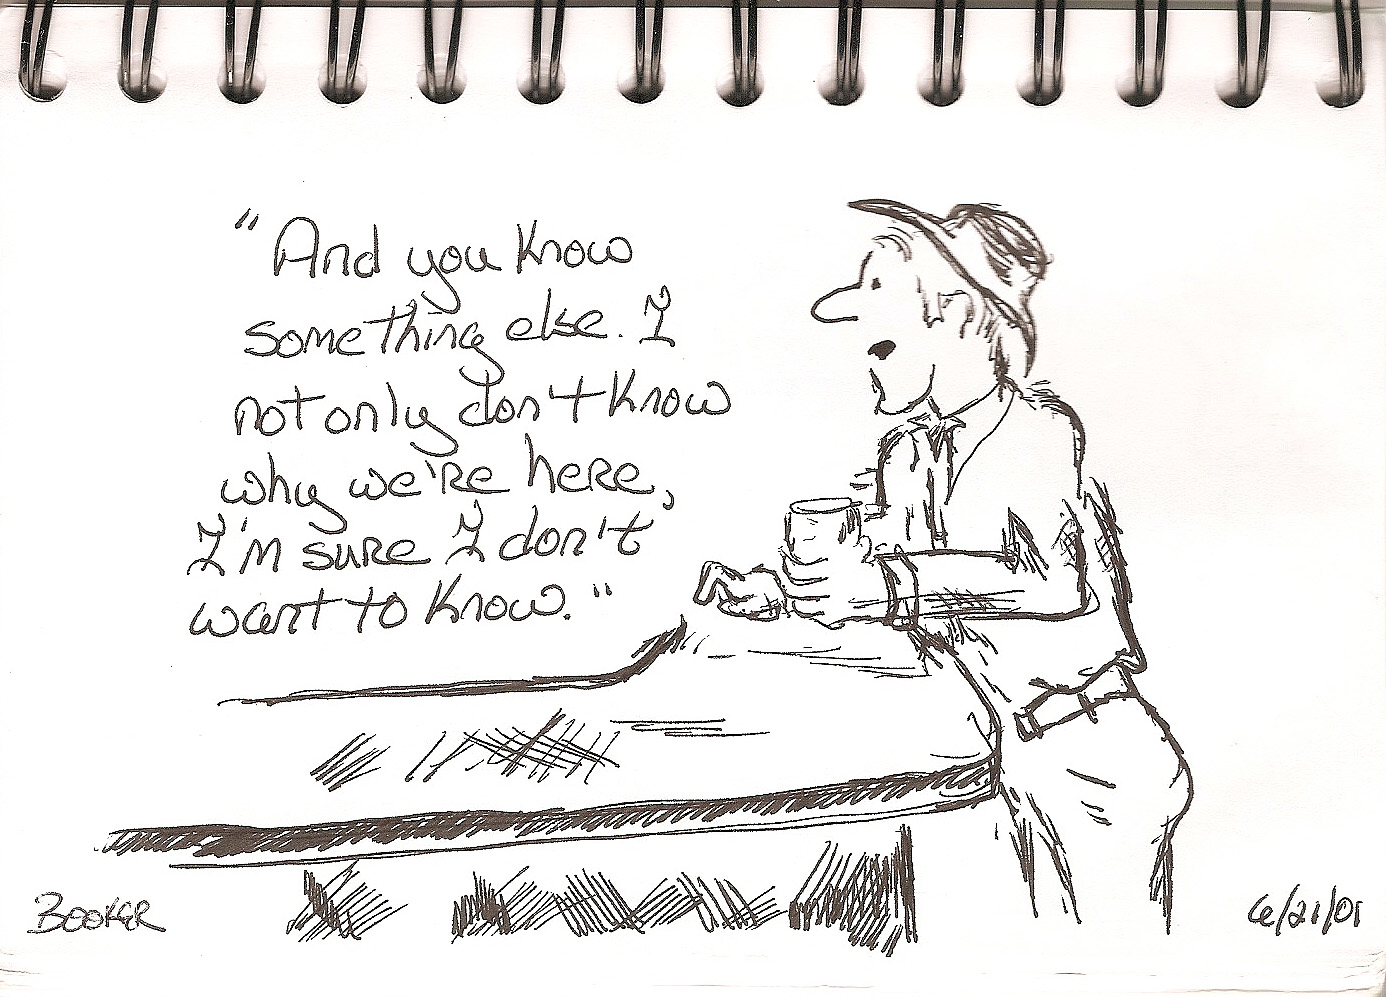 "And you know
something else. I
not only don't know
why we're here,
I'm sure I don't
want to know."
BOOKER
6/21/01